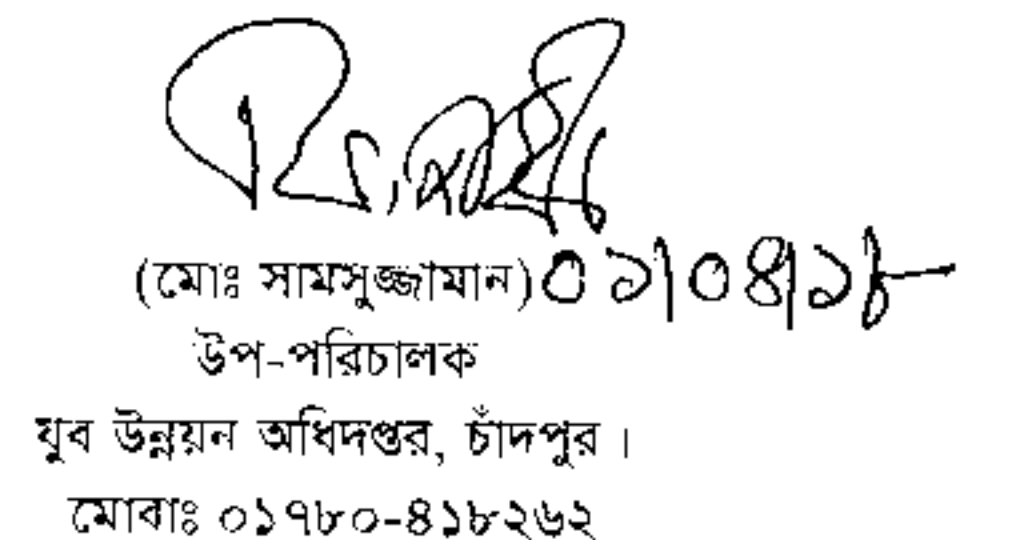 (মোঃ সামসুজ্জামান) ০১|০৪|১৮
উপ-পরিচালক
যুব উন্নয়ন অধিদপ্তর, চাঁদপুর।
মোবাঃ ০১৭৮০-৪১৮২৬২